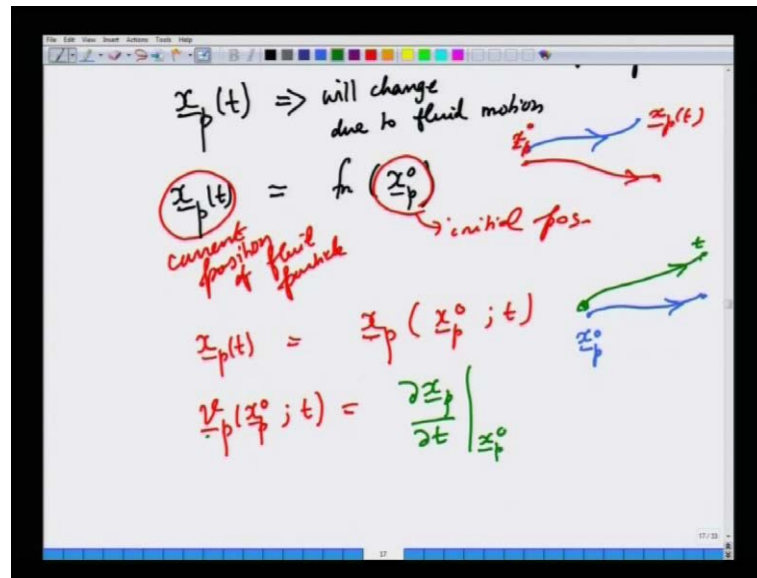 File Edit View Insert Actions Tools Help
x_p(t) => will change
due to fluid motion
x_p° x_p(t)
x_p(t) = fn (x_p°)
initial pos.
current
position
of fluid
particle
t
x_p(t) = x_p ( x_p° ; t )
x_p°
v_p(x_p° ; t) = ∂x_p/∂t |x_p°
17/33
37